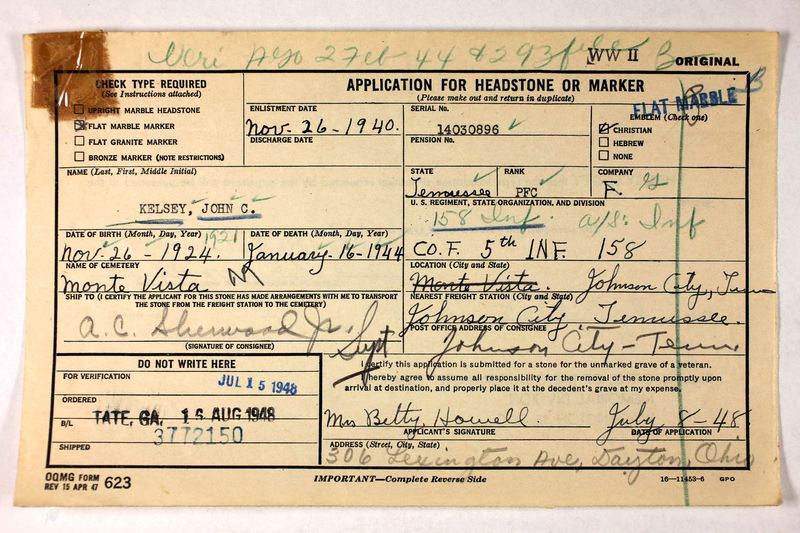 Veri AGO 27 Feb 44 WW II ORIGINAL
CHECK TYPE REQUIRED
(See Instructions attached)
UPRIGHT MARBLE HEADSTONE
FLAT MARBLE MARKER
FLAT GRANITE MARKER
BRONZE MARKER (NOTE RESTRICTIONS)
APPLICATION FOR HEADSTONE OR MARKER
(Please make out and return in duplicate)
ENLISTMENT DATE
Nov. 26-1940.
DISCHARGE DATE
SERIAL No.
14030896
PENSION No.
FLAT MARBLE B
EMBLEM (Check one)
CHRISTIAN
HEBREW
NONE
NAME (Last, First, Middle Initial)
KELSEY, JOHN C.
STATE
Tennessee
RANK
PFC
COMPANY
F.
U. S. REGIMENT, STATE ORGANIZATION, AND DIVISION
158 Inf. a/s. Inf
CO. F. 5th INF. 158
DATE OF BIRTH (Month, Day, Year) 1921
Nov. 26-1924.
DATE OF DEATH (Month, Day, Year)
January-16-1944
NAME OF CEMETERY
Monte Vista
LOCATION (City and State)
Monte Vista. Johnson City, Tenn
SHIP TO (I CERTIFY THE APPLICANT FOR THIS STONE HAS MADE ARRANGEMENTS WITH ME TO TRANSPORT
THE STONE FROM THE FREIGHT STATION TO THE CEMETERY)
A.C. Sherwood Jr. Supt
(SIGNATURE OF CONSIGNEE)
NEAREST FREIGHT STATION (City and State)
Johnson City, Tennessee.
POST OFFICE ADDRESS OF CONSIGNEE
Johnson City-Tenn
DO NOT WRITE HERE
FOR VERIFICATION
JUL 15 1948
ORDERED
TATE, GA. 16 AUG 1948
B/L
3772150
SHIPPED
I certify this application is submitted for a stone for the unmarked grave of a veteran.
I hereby agree to assume all responsibility for the removal of the stone promptly upon
arrival at destination, and properly place it at the decedent's grave at my expense.
Mrs Betty Howell. July 8-48.
APPLICANT'S SIGNATURE DATE OF APPLICATION
ADDRESS (Street, City, State)
306 Lexington Ave, Dayton, Ohio
OQMG FORM
REV 15 APR 47 623
IMPORTANT—Complete Reverse Side
16—11453-6 GPO